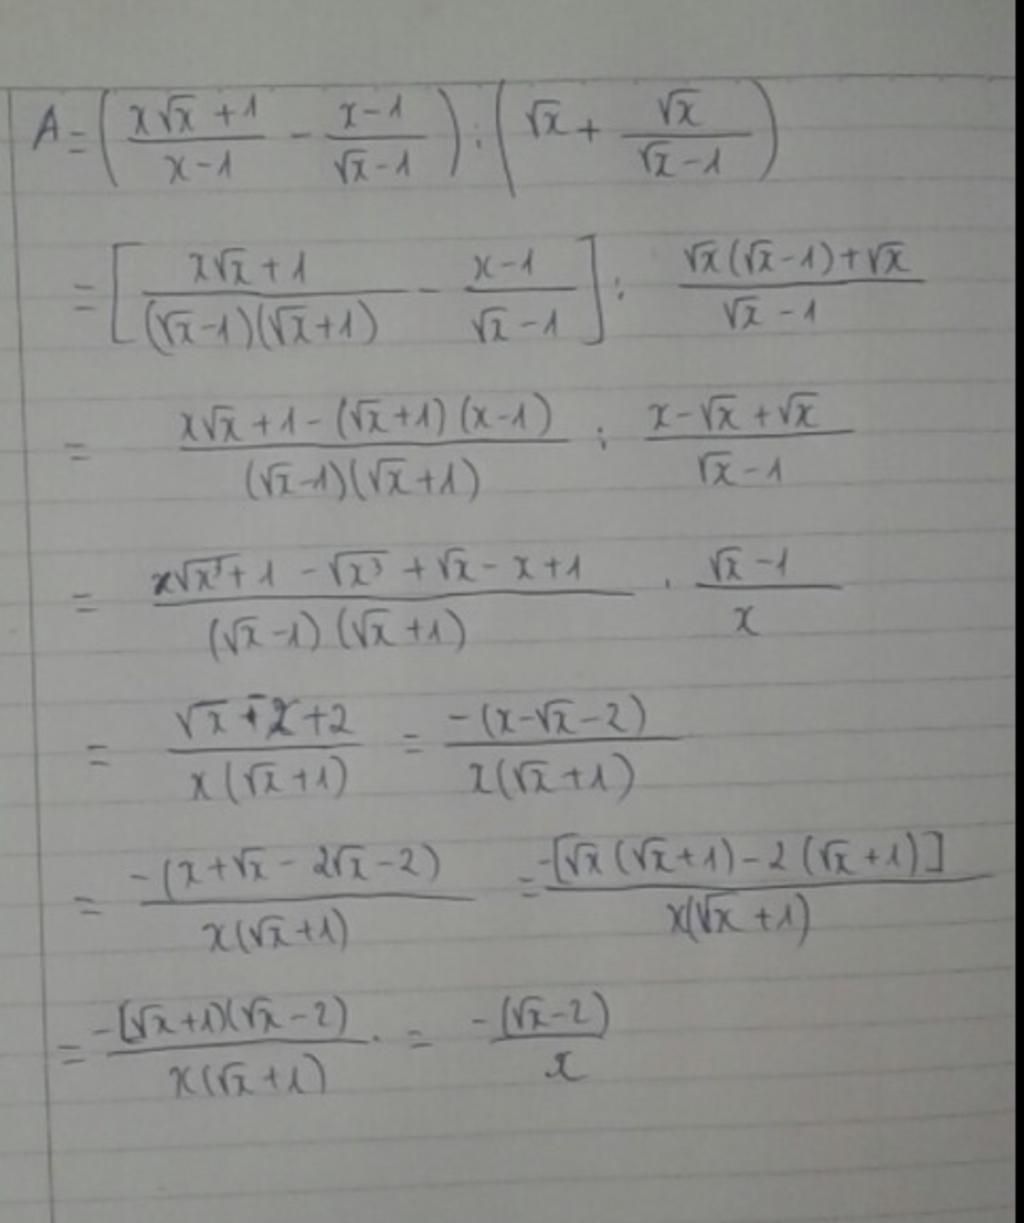 A = ( (x√x + 1)/(x - 1) - (x - 1)/(√x - 1) ) : ( √x + √x/(√x - 1) )
= [ (x√x + 1)/((√x - 1)(√x + 1)) - (x - 1)/(√x - 1) ] : (√x(√x - 1) + √x)/(√x - 1)
= (x√x + 1 - (√x + 1)(x - 1))/((√x - 1)(√x + 1)) : (x - √x + √x)/(√x - 1)
= (√x³ + 1 - √x³ + √x - x + 1)/((√x - 1)(√x + 1)) . (√x - 1)/x
= (√x - x + 2)/(x(√x + 1)) = -(x - √x - 2)/(x(√x + 1))
= -(x + √x - 2√x - 2)/(x(√x + 1)) = -[√x(√x + 1) - 2(√x + 1)]/(x(√x + 1))
= -(√x + 1)(√x - 2)/(x(√x + 1)) . = -(√x - 2)/x